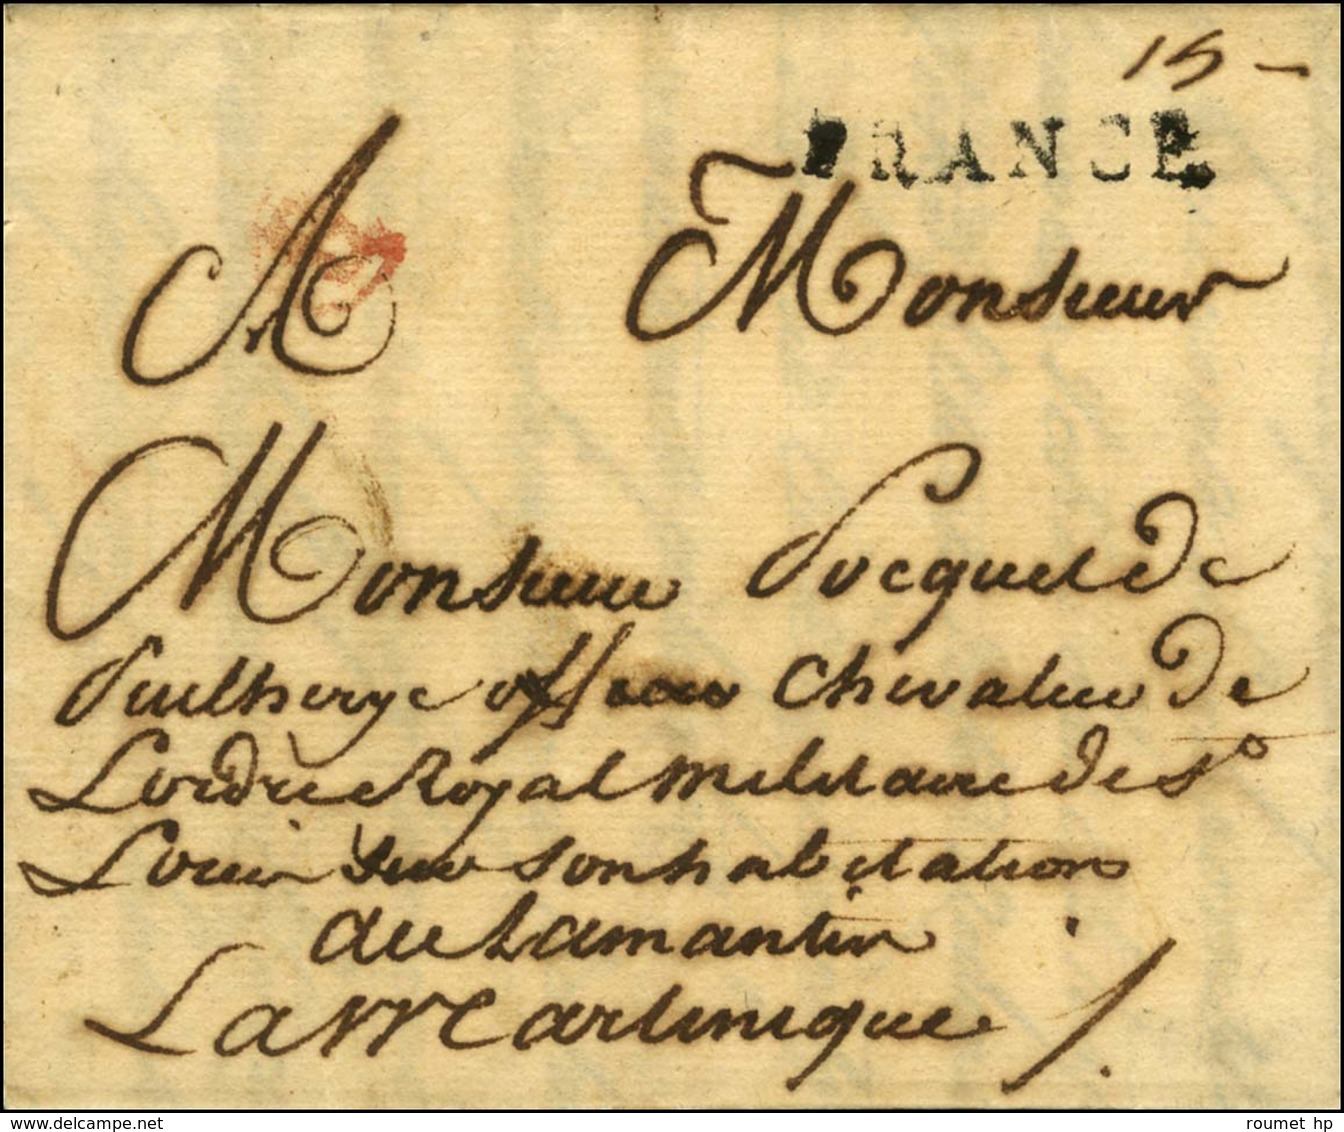 15 -
FRANCE
A Monsieur
Monsieur Pocquet de
Puilherye officier Chevalier de
Lordre Royal Militaire de St
Louis Sur son habitation
au Lamantin
La Martinique /.
delcampe.net
roumet hp